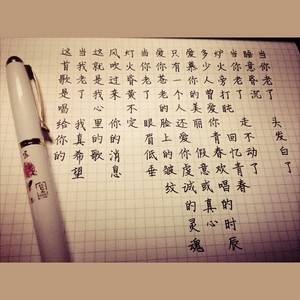 当你老了 头发白了
睡意昏沉
当你老了 走不动了
炉火旁打盹 回忆青春
多少人曾爱你 青春欢唱的时辰
爱慕你的美丽 假意或真心
只有一个人还爱你虔诚的灵魂
爱你苍老的脸上的皱纹
当你老了 眼眉低垂
灯火昏黄不定
风吹过来 你的消息
这就是我心里的歌
当我老了 我真希望
这首歌是唱给你的